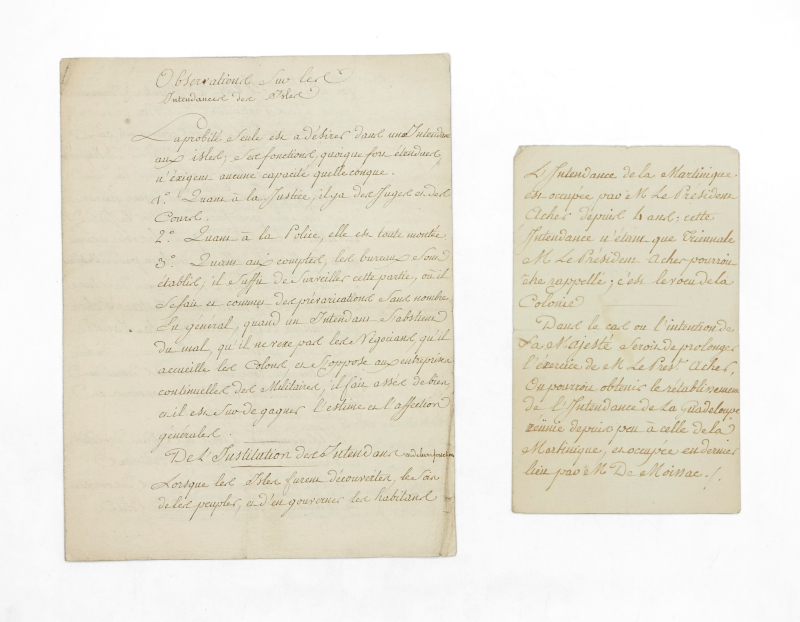 Observations Sur les
Intendances des Isles
La probité Seule est a désirer dans un Intendant
aux isles; Ses fonctions, quoique fort étendues,
n'éxigent aucune capacité quelconque.
1.° Quant à la Justice, il y a des Juges et des
Cours.
2.° Quant à la Police, elle est toute montée
3.° Quant aux comptes, les bureaux Sont
établis; il Suffit de Surveiller cette partie, où il
Se fait et commet des prévarications Sans nombre
En général, quand un Intendant S'abstient
du mal, qu'il ne vexe pas les Négocians qu'il
accueille les Colons, et S'oppose aux entreprises
continuelles des Militaires, il fait assés de bien
et il est Sur de gagner l'estime et l'affection
générales.
De L'Institution des Intendans et de leurs fonctions
Lorsque les Isles furent découvertes, le Soin
de les peupler, et d'en gouverner les habitans
L'Intendance de la Martinique
est occupée par M. Le Président
Acher depuis 4 ans; cette
Intendance n'étant que Triennale
M. Le Président Acher pourroit
être rappellé; c'est le voeu de la
Colonie
Dans le cas ou l'intention de
Sa Majesté Seroit de prolonger
l'éxercice de M. Le Pres.t Acher,
On pourroit obtenir le rétablissement
de L'Intendance de La Guadeloupe
réünie depuis peu à celle de la
Martinique, et occupée en dernier
lieu par M. De Moissac.